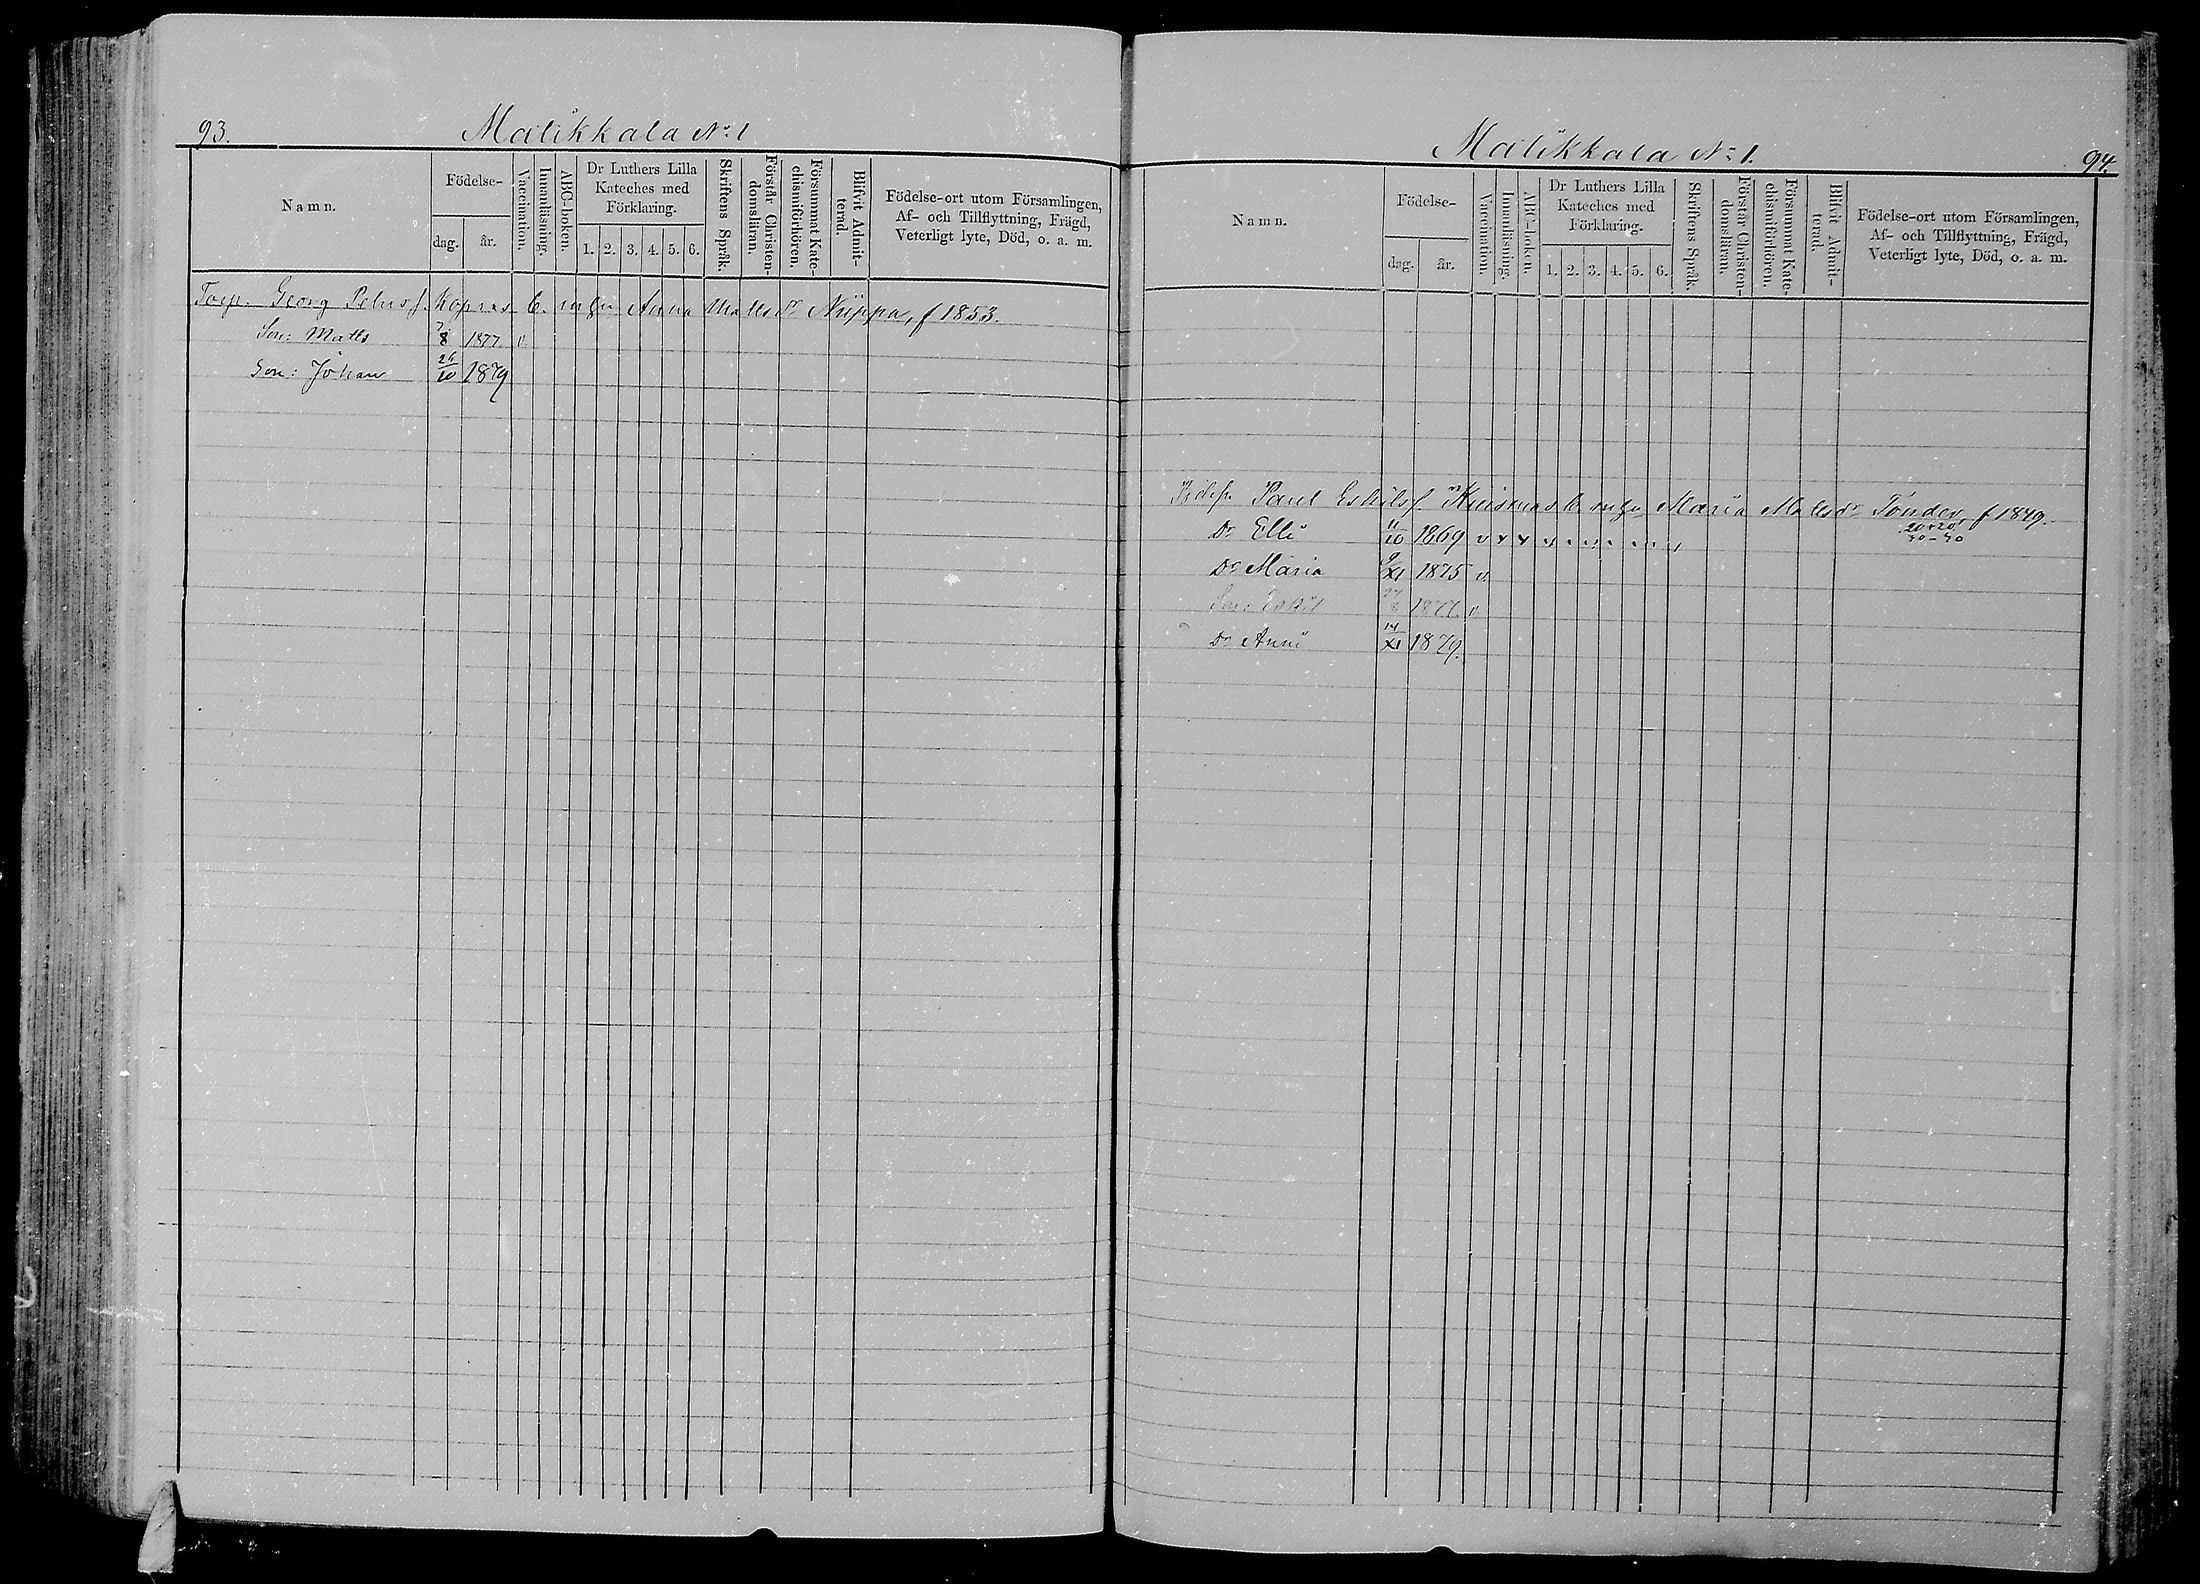 93.
Malikkala No 1
Namn.
Födelse-
dag.
år.
Vaccination.
Innanläsning.
ABC-boken.
Dr Luthers Lilla
Kateches med
Förklaring.
1. 2. 3. 4. 5. 6.
Skriftens Språk.
Förstår Christen-
domsläran.
Försummat Kate-
chismiförhören.
Blifvit Admit-
terad.
Födelse-ort utom Församlingen,
Af- och Tillflyttning, Frägd,
Veterligt lyte, Död, o. a. m.
Georg Petriss. b. m hu Anna Mattsdr Niippa, f 1853.
Son: Matts 7/8 1877. v
Son: Johan 26/10 1879
Malikkala No 1.
94.
Namn.
Födelse-
dag.
år.
Vaccination.
Innanläsning.
ABC-boken.
Dr Luthers Lilla
Kateches med
Förklaring.
1. 2. 3. 4. 5. 6.
Skriftens Språk.
Förstår Christen-
domsläran.
Försummat Kate-
chismiförhören.
Blifvit Admit-
terad.
Födelse-ort utom Församlingen,
Af- och Tillflyttning, Frägd,
Veterligt lyte, Död, o. a. m.
Paul Eskilss. b m hu Maria Mattsdr Tönder, f 1849.
Dr Elli 11/10 1869 v
Dr Maria 9/XI 1875 v
Son: Eskil 1877. v
Dr Anni 14/XI 1879.